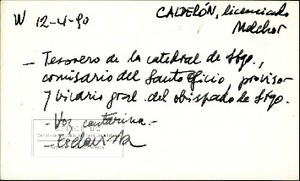 W 12-4-90
CALDERÓN, licenciado
Melchor
- Tesorero de la catedral de Stgo.,
comisario del Santo Oficio, provisor
y vicario gral. del obispado de Stgo.
- Voz cantarina.-
- Esclavista